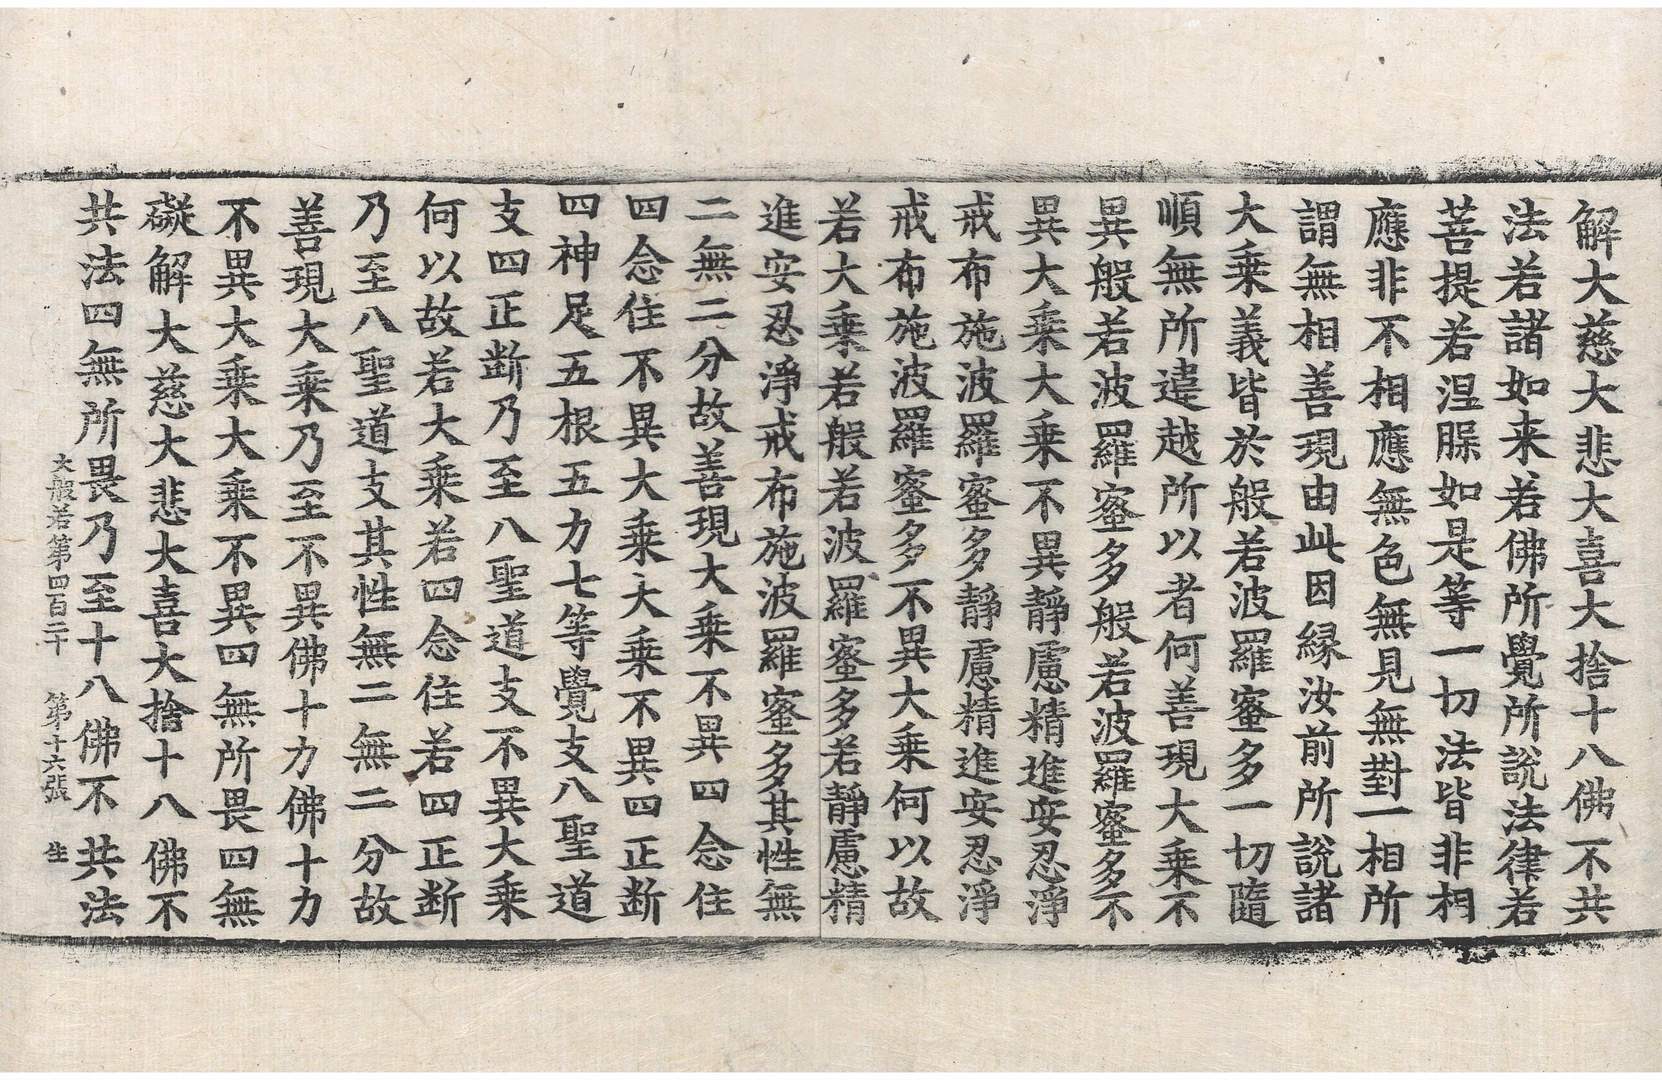 解大慈大悲大喜大捨十八佛不共
法若諸如来若佛所覺所說法律若
菩提若涅槃如是等一切法皆非相
應非不相應無色無見無對一相所
謂無相善現由此因縁汝前所說諸
大乗義皆於般若波羅蜜多一切隨
順無所違越所以者何善現大乗不
異般若波羅蜜多般若波羅蜜多不
異大乗大乗不異靜慮精進安忍淨
戒布施波羅蜜多靜慮精進安忍淨
戒布施波羅蜜多不異大乗何以故
若大乗若般若波羅蜜多若靜慮精
進安忍淨戒布施波羅蜜多其性無
二無二分故善現大乗不異四念住
四念住不異大乗大乗不異四正断
四神足五根五力七等覺支八聖道
支四正断乃至八聖道支不異大乗
何以故若大乗若四念住若四正断
乃至八聖道支其性無二無二分故
善現大乗乃至不異佛十力佛十力
不異大乗大乗不異四無所畏四無
礙解大慈大悲大喜大捨十八佛不
共法四無所畏乃至十八佛不共法
大般若第四百二十 第十六張 生